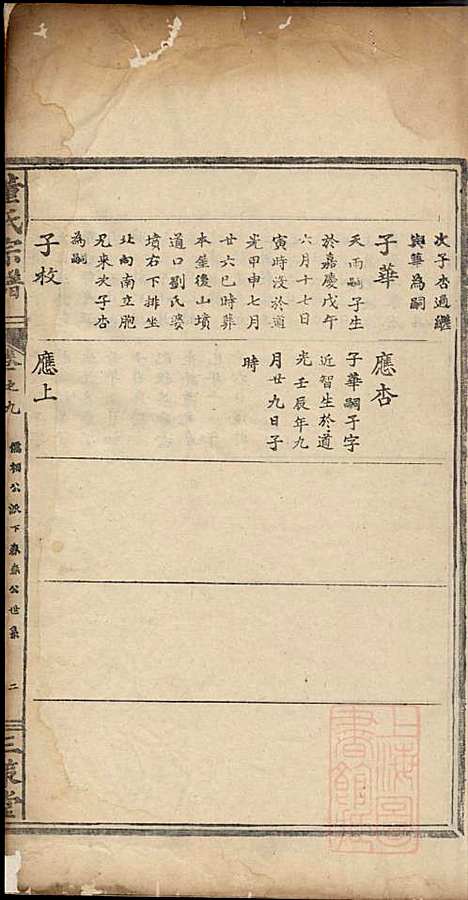 次子杏過繼
與華為嗣
子華
天雨嗣子生
於嘉慶戊午
六月十七日
寅時沒於道
光甲申七月
廿六巳時葬
本屋後山墳
道口劉氏婆
墳右下排坐
北向南立胞
兄來次子杏
為嗣
子牧
應杏
子華嗣子字
近智生於道
光壬辰年九
月廿九日子
時
應上
董氏宗譜
卷之九
儒相公派下
公世系
二
三策堂
上海圖書館藏